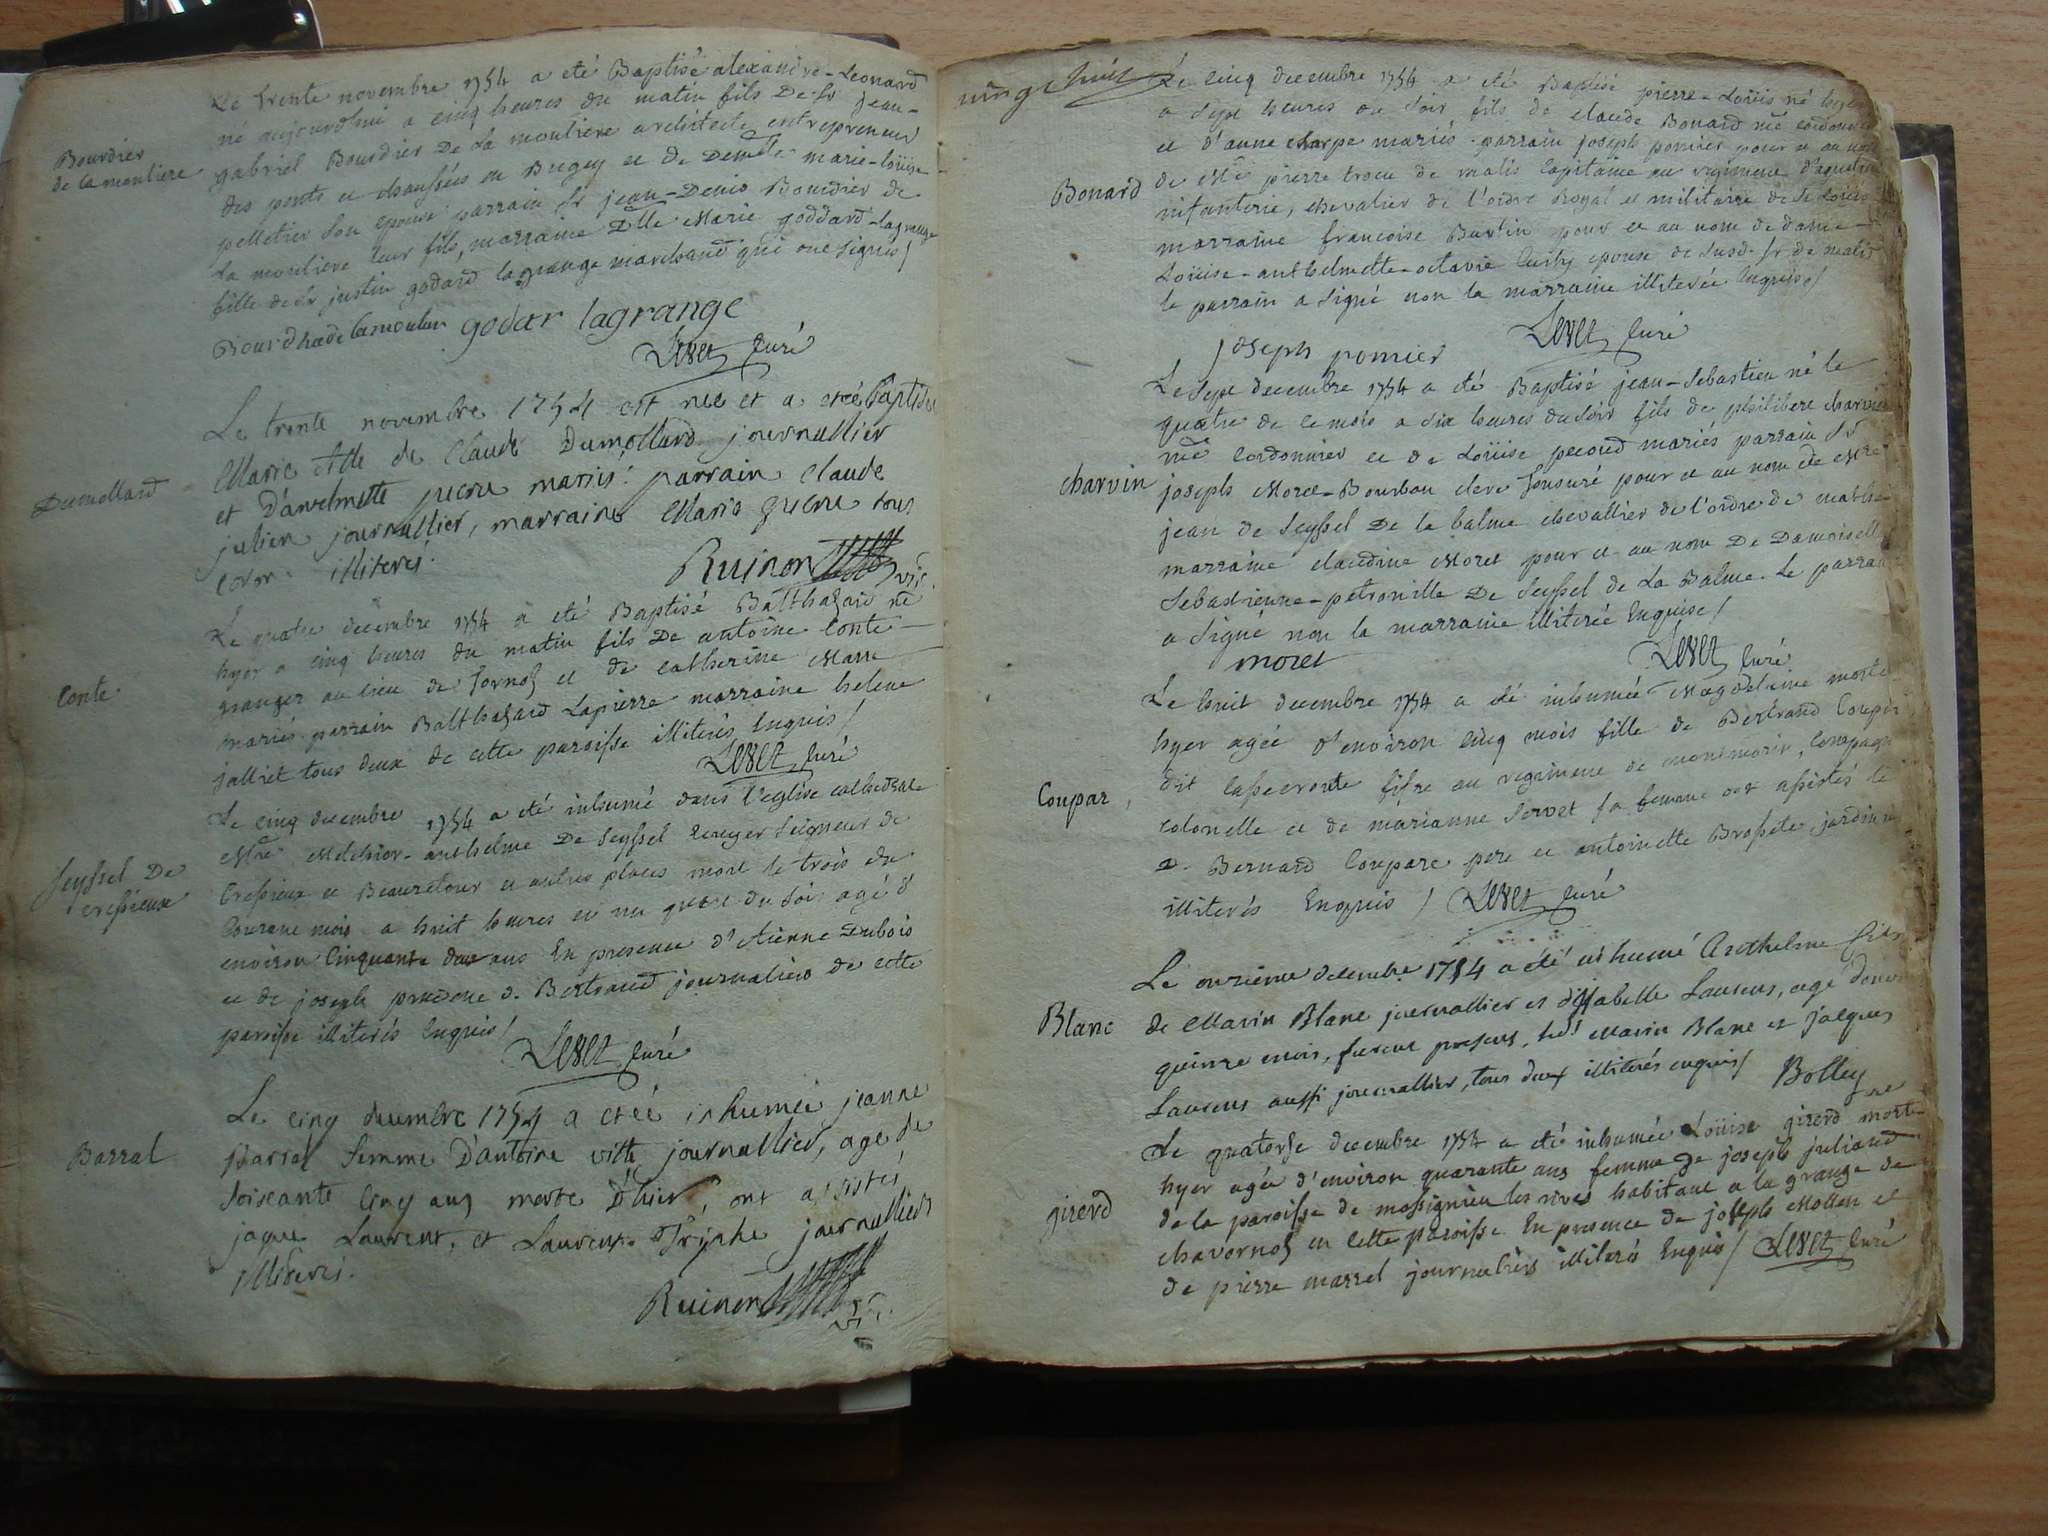 Bourdier
de la moulière
Le trente novembre 1754 a eté Baptisé alexandre-Leonard
né aujourd'hui a cinq heures du matin fils De Sr jean-
gabriel Bourdier De la mouliere architecte entrepreneur
des ponts et chaussées en Bugey et de Demlle marie-Loüise
pelletier son epouse parrain Sr jean-Denis Bourdier de
la mouliere leur fils, marraine Dlle Marie goddard-lagrange
fille de Sr justin godard lagrange marchand qui ont signés /
godar lagrange
Levet Curé
Dumollard
Le trente novembre 1754 est née et a eteé baptisée
Marie fille de Claude Dumollard journallier
et D'antelmette mariés: parrain Claude
julien journallier, marraine Marie tous
illiterés.
Ruinon vic.
Conte
Le quatre decembre 1754 a eté Baptisé Balthasard né
hyer a cinq heures du matin fils De antoine Conte
granger au lieu de et de catherine
mariés parrain Balthasard Lapierre marraine helene
jallriet tous deux de cette paroisse illiterés Enquis /
Levet Curé
Seyssel De
cressieux
Le cinq decembre 1754 a eté inhumé dans l'eglise cathedrale
Mre Melchior-anthelme De Seyssel Ecuyer Seigneur de
Cressieux et Beauretour et autres places mort le trois du
Courant mois a huit heures et un quart du soir agé d'
environ Cinquante deux ans En presence d'Etienne Dubois
et de joseph d. Bertrand journaliers de cette
paroisse illiterés Enquis /
Levet Curé
Barral
Le cinq decembre 1754 a eteé inhumée jeanne
Barral femme D'antoine vitte journallier, age de
soiscante cinq ans morte D'hier, ont assistés
jaque Laurent, et Laurent journalliers
illiterés.
Ruinon vic.
vingt huit
Bonard
Le cinq decembre 1754 a eté Baptisé pierre-Loüis né hyer
a sept heures du soir fils de claude Bonard me cordonnier
et d'anne charpe mariés parrain joseph pomier pour et au nom
de Mre pierre trocu de matis Capitaine au regiment d'aquitaine
infanterie, chevalier de l'ordre Royal et militaire de St Loüis
marraine francoise Burtin pour et au nom de dame
Loüise-anthelmette-octavie epouse de susd. Sr de matis
le parrain a signé non la marraine illiterée Enquise /
joseph pomier Levet Curé
charvin
Le Sept decembre 1754 a eté Baptisé jean-Sebastien né le
quatre de ce mois a six heures du soir fils de philibert charvin
me Cordonnier et de Loüise pecoud mariés parrain Sr
joseph Moret-Bourbon clerc tonsuré pour et au nom de Mre
jean de Seyssel De la balme chevallier de l'ordre de malthe
marraine claudine Moret pour et au nom De Damoiselle
Sebastienne-petronille De Seyssel de La Balme. Le parrain
a signé non la marraine illiterée Enquise /
moret Levet Curé
Coupar,
Le huit decembre 1754 a eté inhumée Magdelaine morte
hyer agée d'environ cinq mois fille de Bertrand Coupar
dit fifre au regiment de monmorin, Compagnie
colonelle et de marianne Servet sa femme ont assistés le
d. Bernard Coupare pere et antoinette Brossete jardiniere
illiterés Enquis / Levet Curé
Blanc
Le onzieme decembre 1754 a eté inhumé Anthelme fils
de Marin Blanc journallier et d'ysabelle Laurens, agé d'environ
quinze mois, furent presens, led! Marin Blanc et jacques
Laurens aussi journallier, tous deux illiterés enquis / Bolley
girerd
Le quatorse decembre 1754 a eté inhumée Loüise girerd morte
hyer agée d'environ quarante ans femme de joseph juliand
de la paroisse de massignieu les rives habitant a la grange de
chavornos en cette paroisse En presence de joseph Mollen et
de pierre marrel journaliers illiterés Enquis / Levet Curé